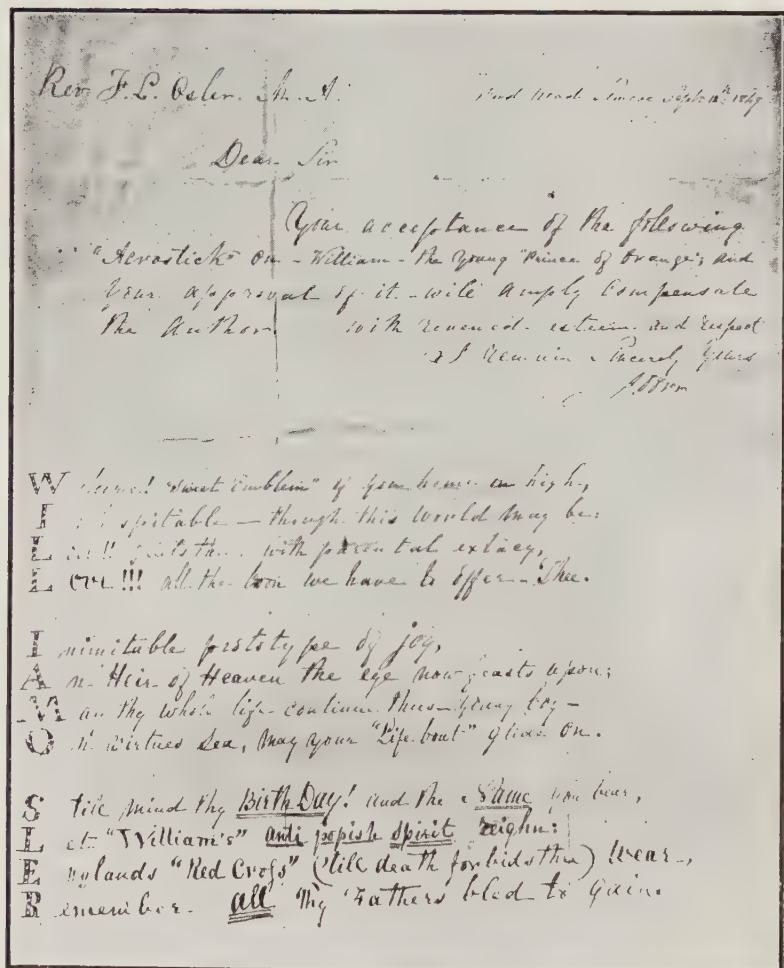 Rev. F. L. Osler. M. A.
Bond Head Simcoe Sept. 12th 1849
Dear Sir
Your acceptance of the following
"Acrostick" on - William - the Young "Prince of Orange"; and
Your approval of it - will amply compensate
the Author. with esteem and respect
I Remain Sincerely Yours
W elcome! "sweet Emblem" of home on high,
I spitable - though this World may be:
L with parental extacy,
L ove!!! all the boon we have to offer - Thee.
I nimitable prototype of joy,
A n Heir of Heaven the eye now feasts upon;
M ay thy whole life continue thus - young boy -
O n Virtues Sea, may your "Life boat" glide on.
S till mind thy Birth Day! and the Name you bear,
L et "William's" anti popish spirit reighn:
E nglands "Red Cross" ('till death forbids thee) Wear,
R emember all thy Fathers bled to gain.